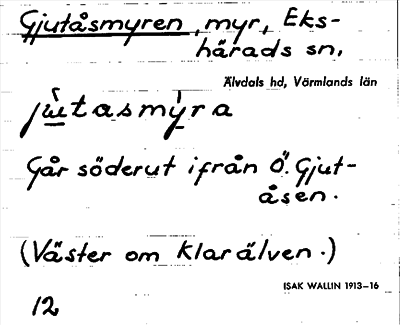 Gjutåsmyren, myr, Eks-
härads sn,
Älvdals hd, Värmlands län
jùtasmỳra
Går söderut ifrån Ö. Gjut-
åsen.
(Väster om Klarälven.)
ISAK WALLIN 1913–16
12